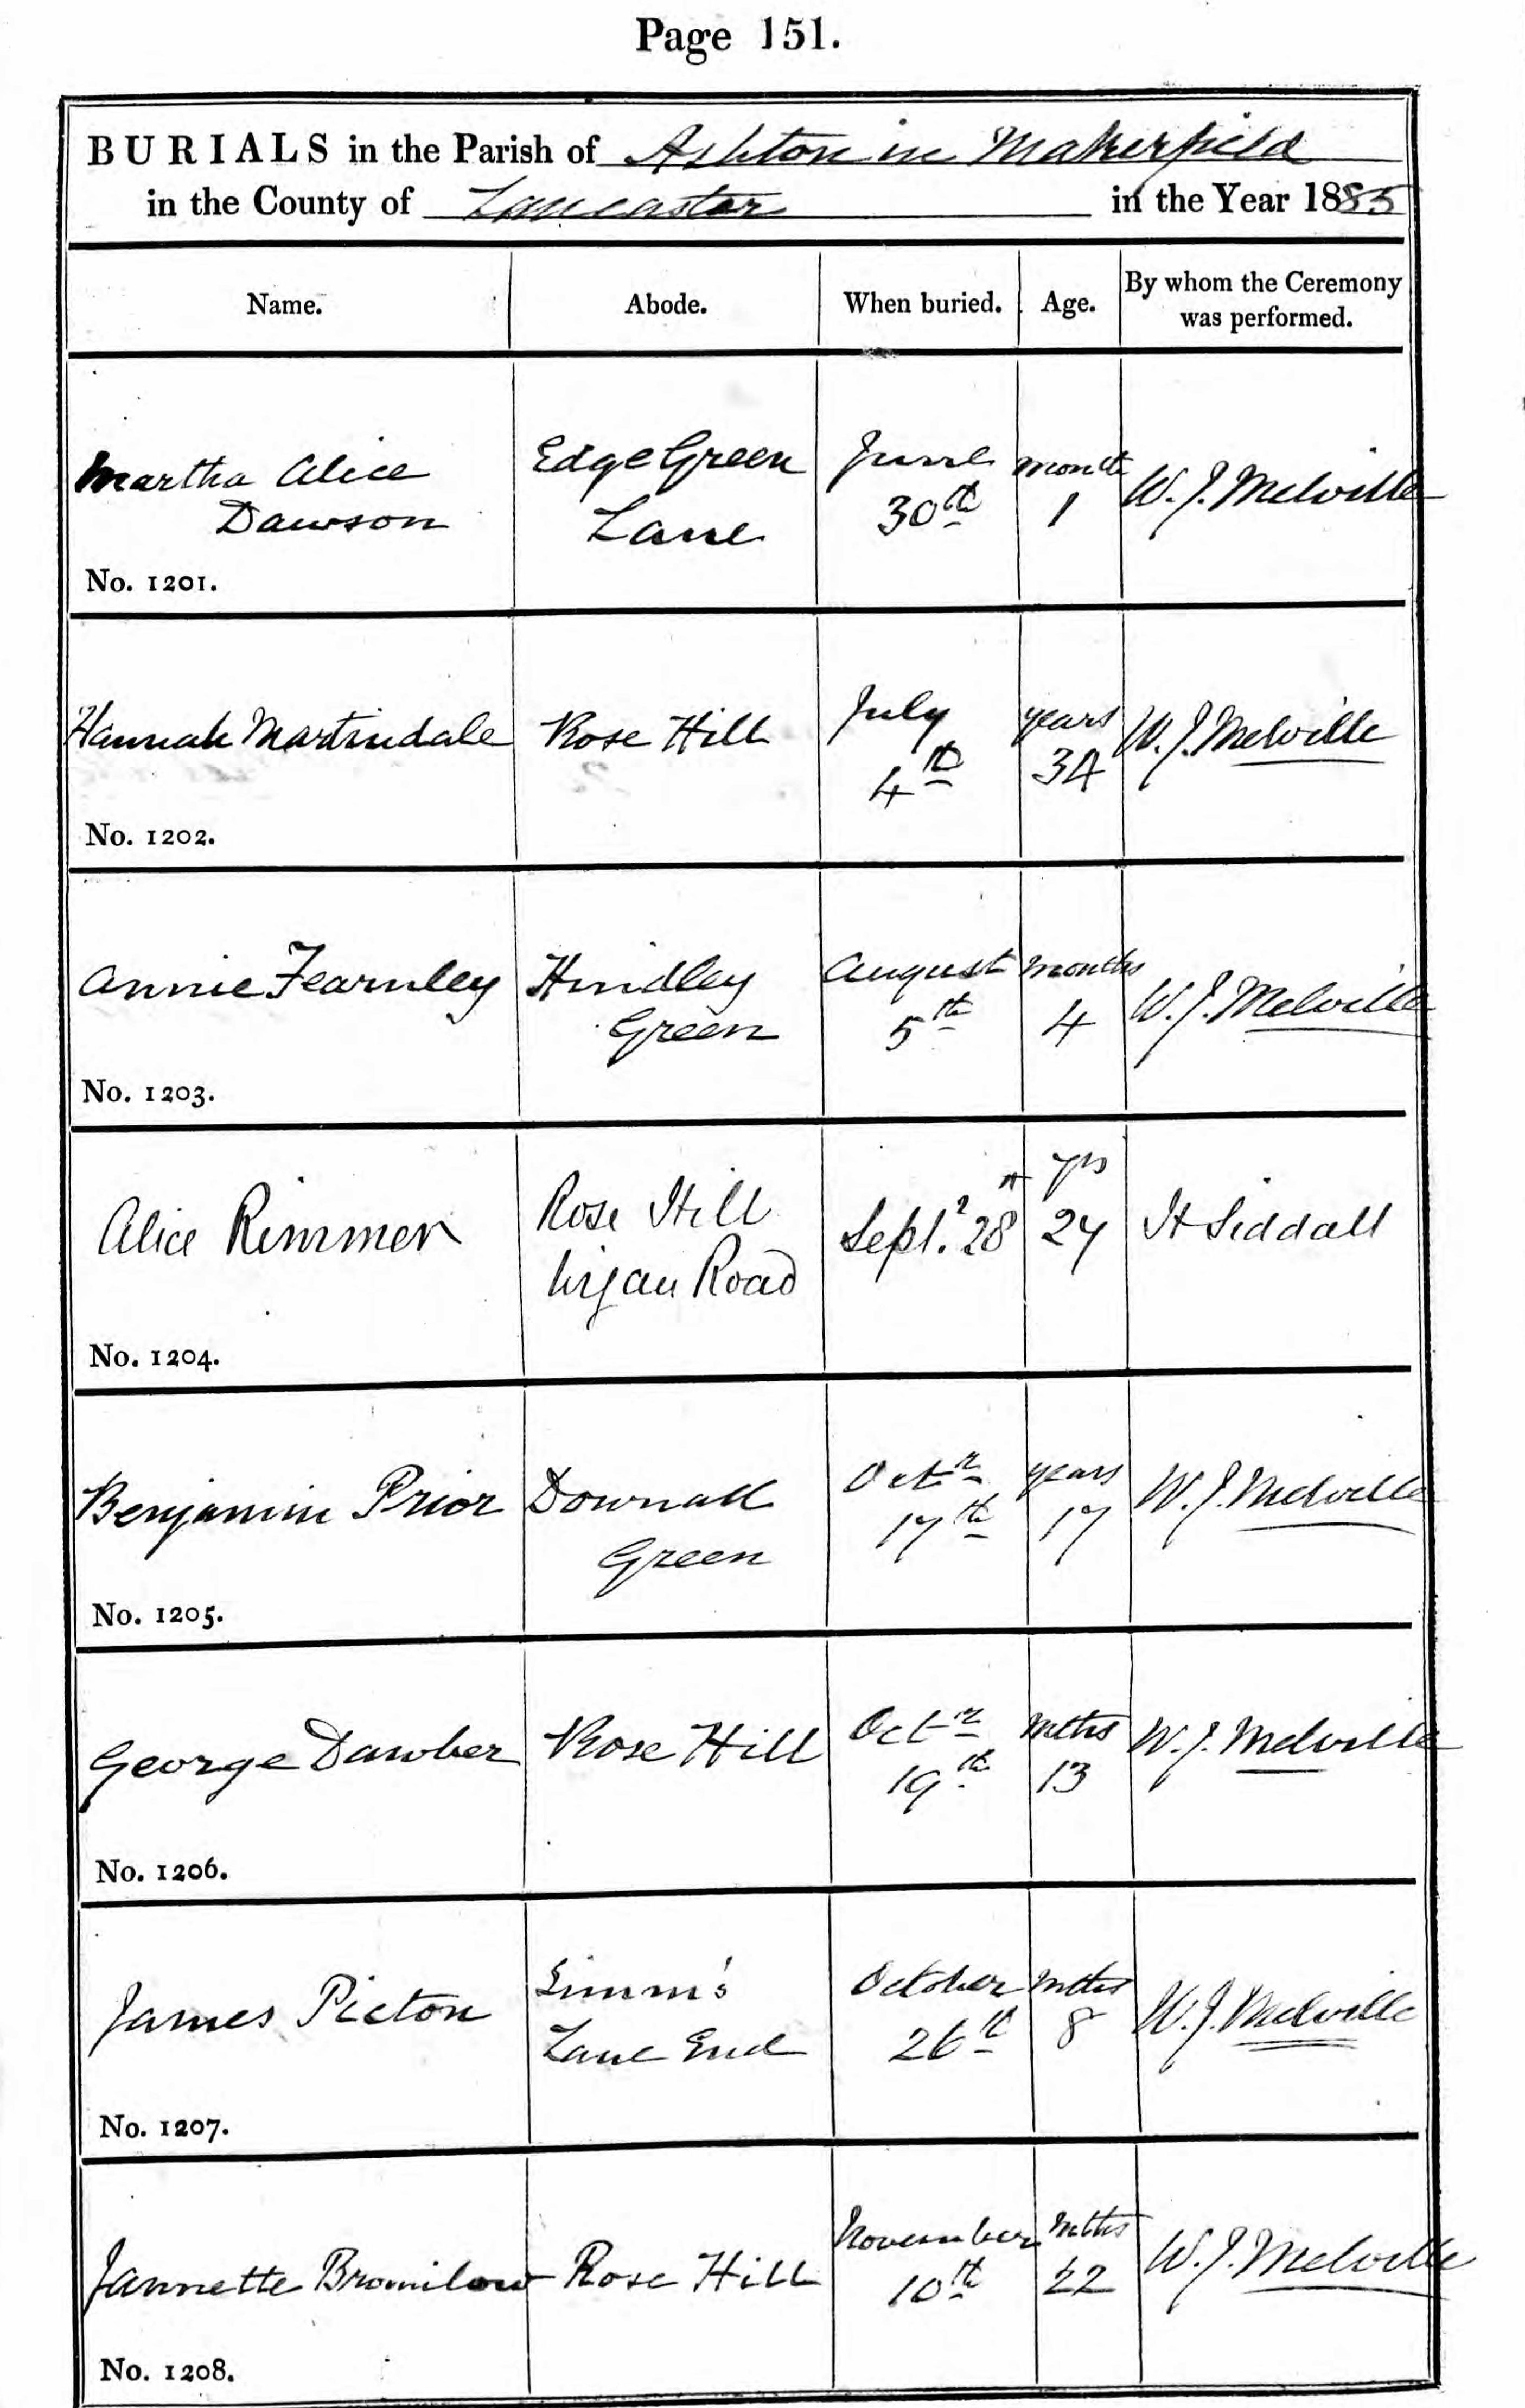 Page 151.
BURIALS in the Parish of Ashton in Makerfield
in the County of Lancaster in the Year 1885
Name. Abode. When buried. Age. By whom the Ceremony was performed.
Martha Alice Edge Green June month W. J. Melville
Dawson Lane 30th 1
No. 1201.
Hannah Martindale Rose Hill July years W. J. Melville
4th 34
No. 1202.
Annie Fearnley Hindley August months W. J. Melville
Green 5th 4
No. 1203.
Alice Rimmer Rose Hill Sept. 28 yrs 24 Siddall
Wigan Road
No. 1204.
Benjamin Prior Downall Octr years W. J. Melville
Green 17th 17
No. 1205.
George Dawber Rose Hill Octr mths W. J. Melville
19th 13
No. 1206.
James Picton Simm's October mths W. J. Melville
Lane End 26th 8
No. 1207.
Jannette Bromilow Rose Hill November mths W. J. Melville
10th 22
No. 1208.